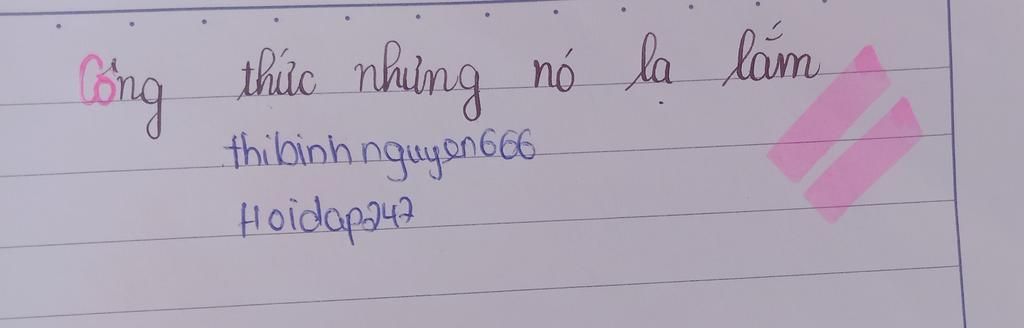 Công thức nhưng nó lạ lắm
thibinhnguyen666
Hoidap247